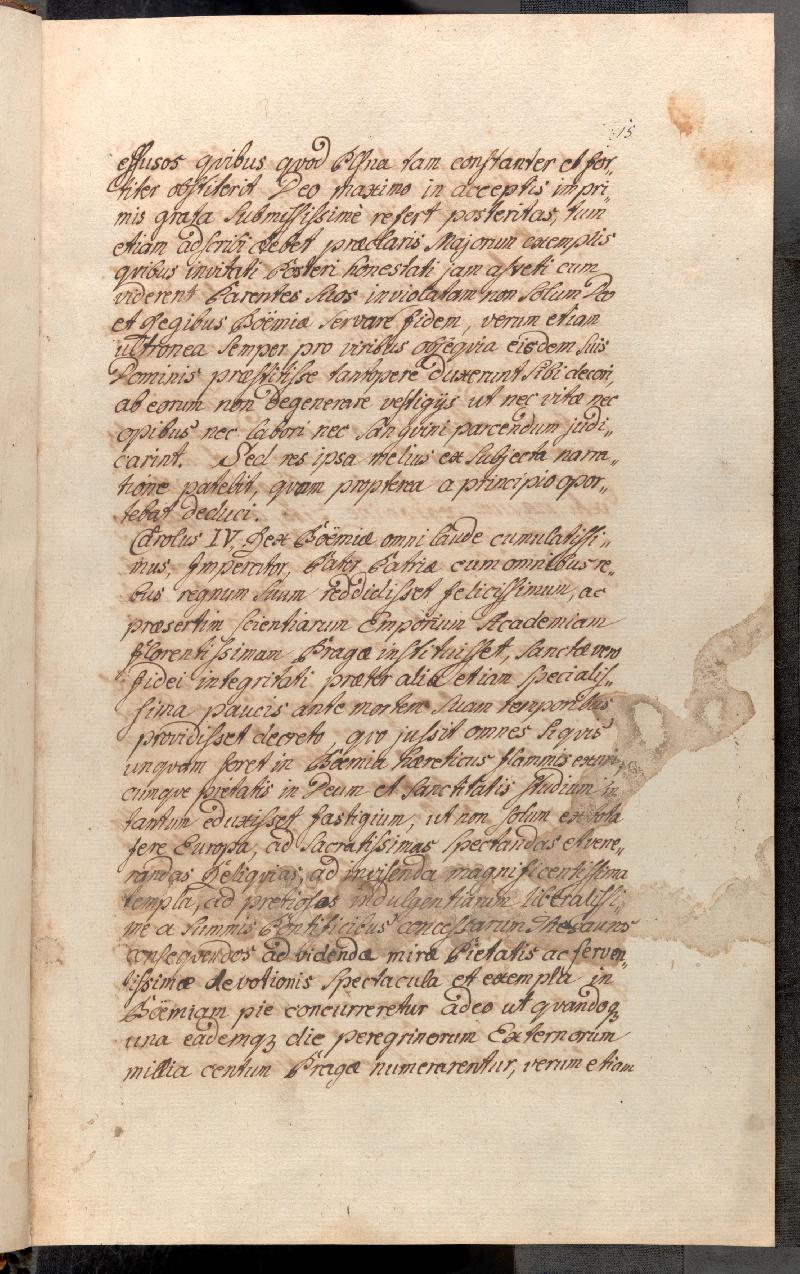 15
effusos quibus quod Plsna tam constanter et for„
titer obstiterit Deo maximo in acceptis impri„
mis grata submississimè refert posteritas, tum
etiam adscribi debet præclaris Majorum exemplis
quibus invitati Posteri honestati jam asveti cum
viderent Parentes suos inviolatam non solum Deo
et Regibus Boëmiæ servare fidem, verum etiam
ultronea semper pro viribus obsequia eisdem suis
Dominis præstitisse tantopere duxerunt sibi decori,
ab eorum non degenerare vestigijs ut nec vitæ nec
opibus nec labori nec sangvini parcendum judi„
carint. Sed res ipsa melius ex subjecta narra„
tione patebit, quam propterea a principio opor„
tebat deduci.
Carolus IV. Rex Boëmiæ omni laude cumulatissi„
mus, Imperator, Pater Patriæ cum omnibus re„
bus regnum suum reddidisset felicissimum, ac
præsertim scientiarum Emporium Academiam
florentissimam Pragæ instituisset, sanctæ vero
fidei integritati præter alia etiam specialis„
sima paucis ante mortem suam temporibus
providisset decreto, quo jussit omnes siquis
unquam foret in Boëmia hæreticus flammis exuri,
cumque pietatis in Deum et Sanctitatis studium in
tantum eduxisset fastigium, ut non solum ex tota
fere Europa, ad Sacratissimas spectandas et vene„
randas Reliquias, ad invisenda magnificentissima
templa, ad pretiosos indulgentiarum liberalissi„
me a Summis Pontificibus concessarum Thesauros
consequendos ad videnda miræ Pietatis ac ferven„
tissimæ devotionis spectacula et exempla in
Boëmiam pie concurreretur adeo ut quandoq3
una eademq3 die peregrinorum Externorum
millia centum Pragæ numerarentur, verum etiam